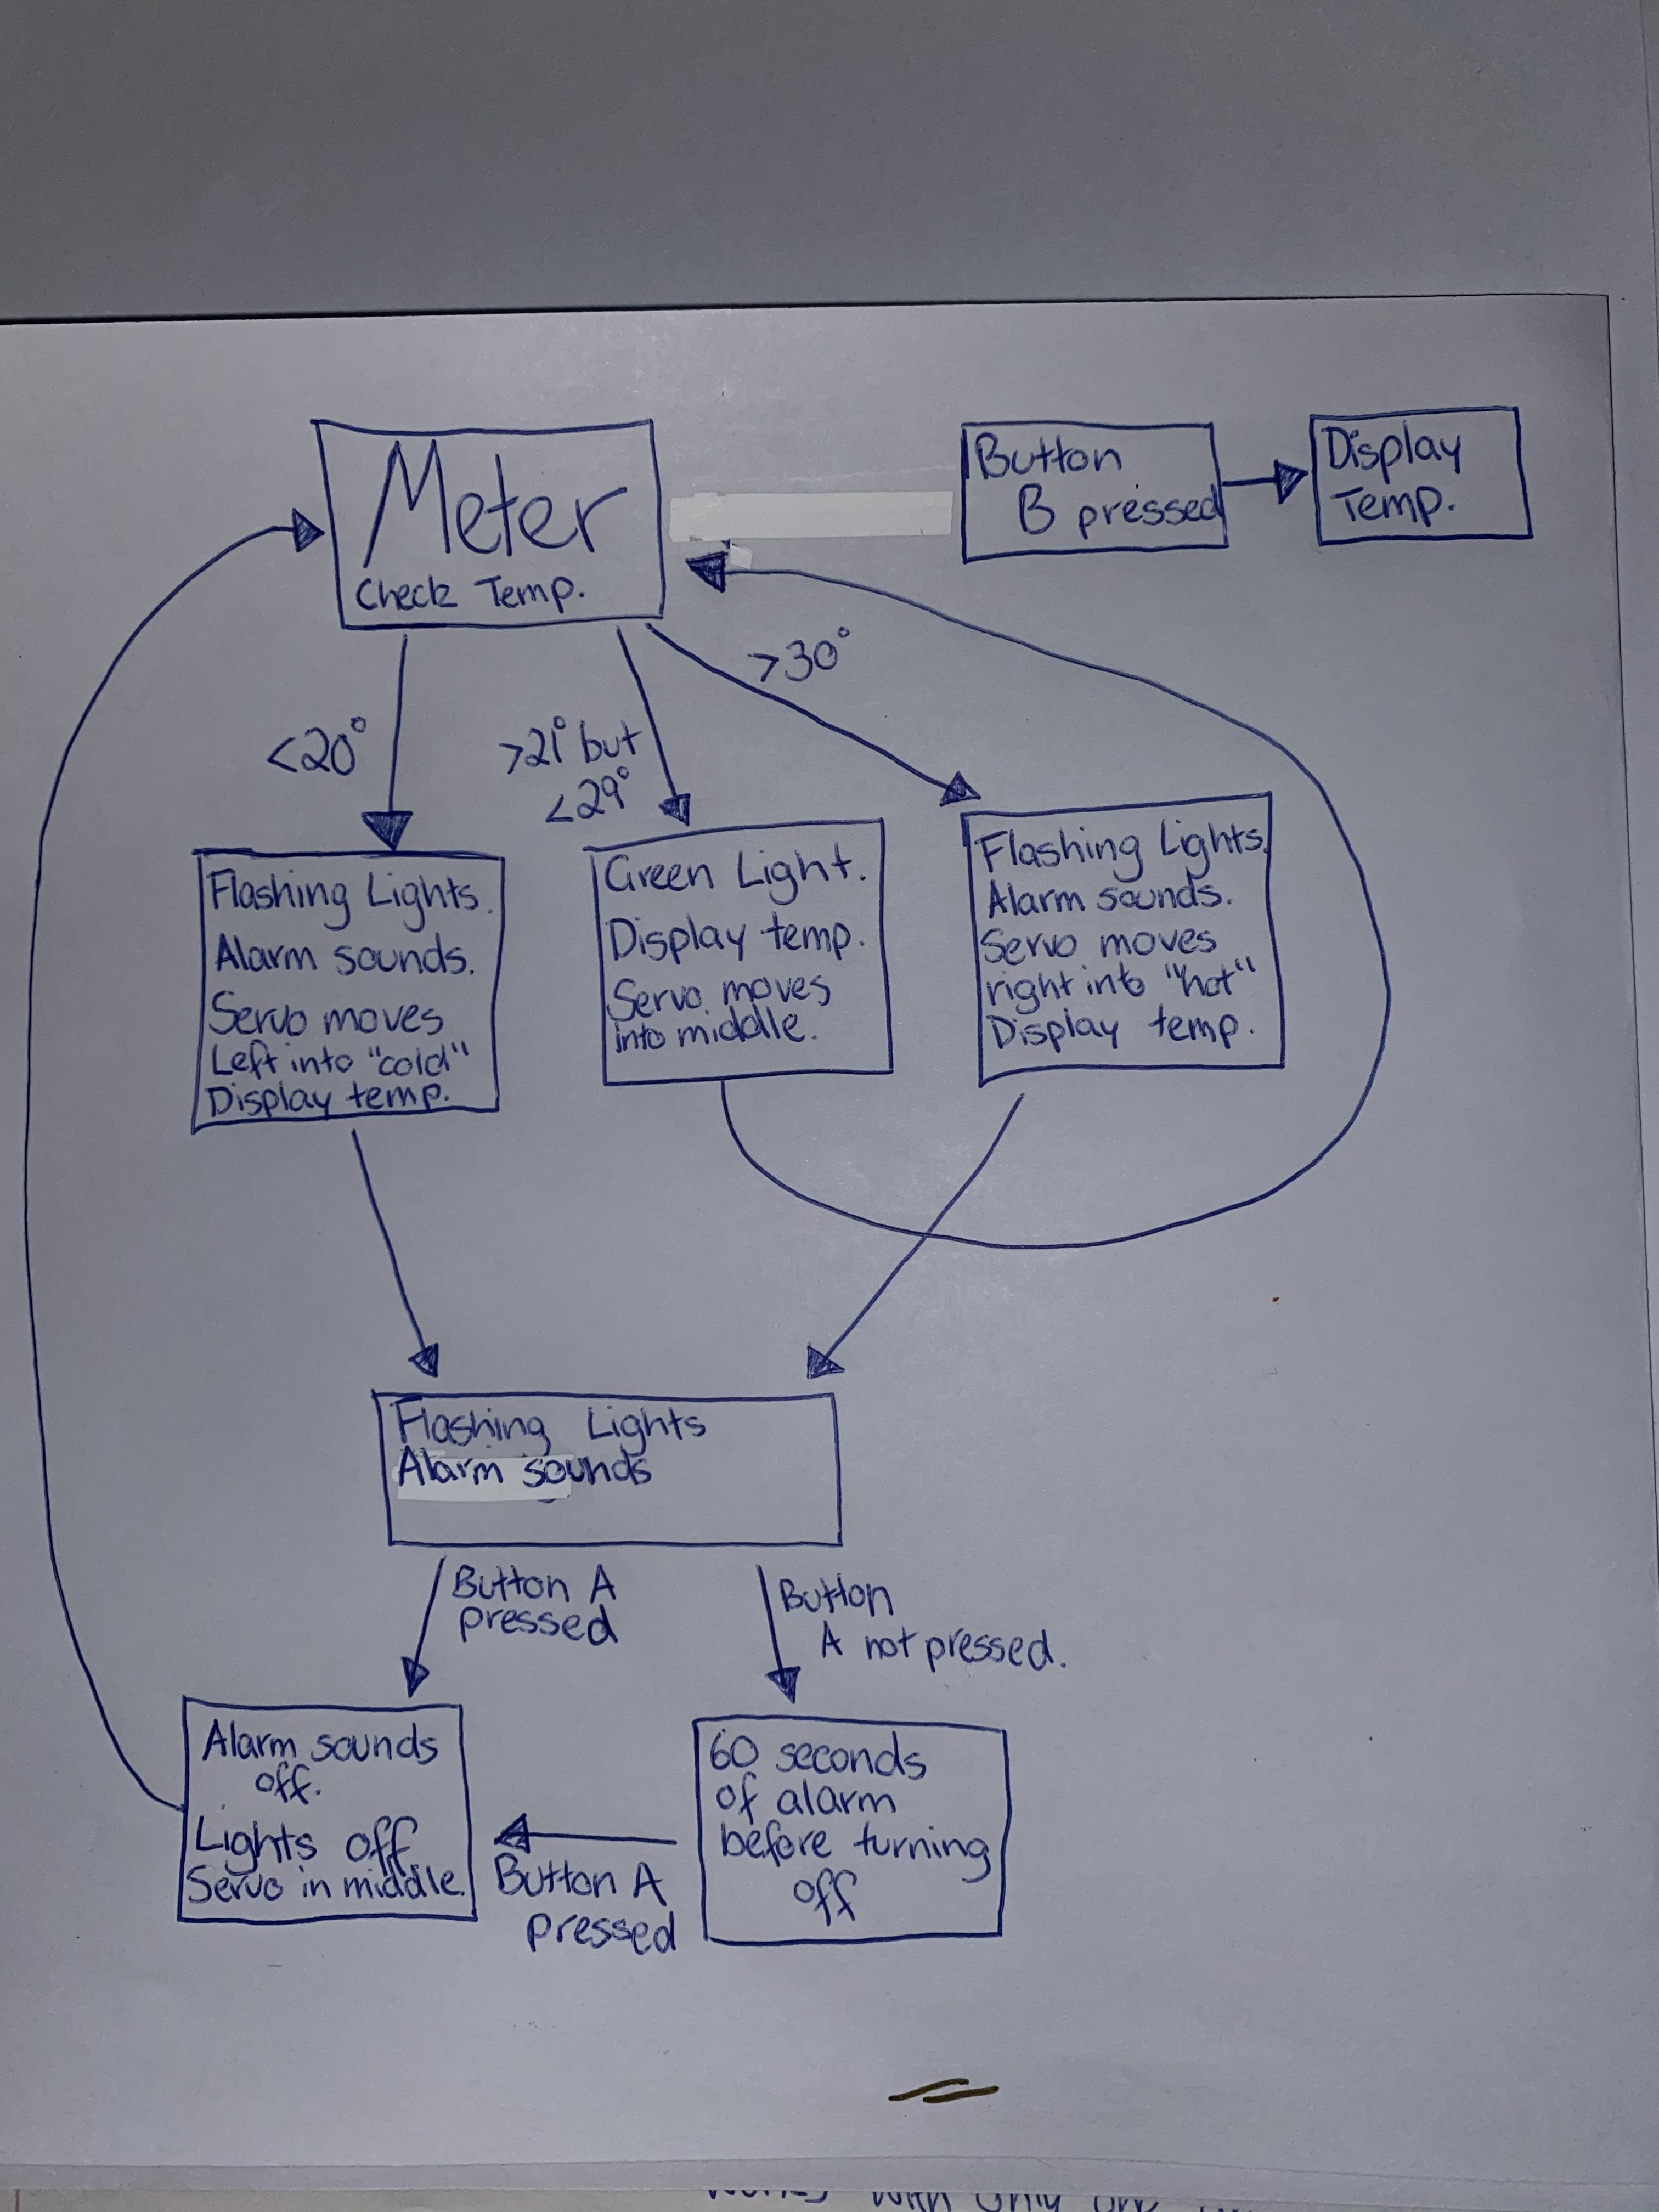 Meter
Check Temp.
Button
B pressed
Display
Temp.
<20°
>21° but
<29°
>30°
Flashing Lights.
Alarm sounds.
Servo moves
Left into "cold"
Display temp.
Green Light.
Display temp.
Servo moves
into middle.
Flashing Lights.
Alarm sounds.
Servo moves
right into "hot"
Display temp.
Flashing Lights
Alarm sounds
Button A
pressed
Button
A not pressed.
Alarm sounds
off.
Lights off
Servo in middle.
Button A
pressed
60 seconds
of alarm
before turning
off
with only one